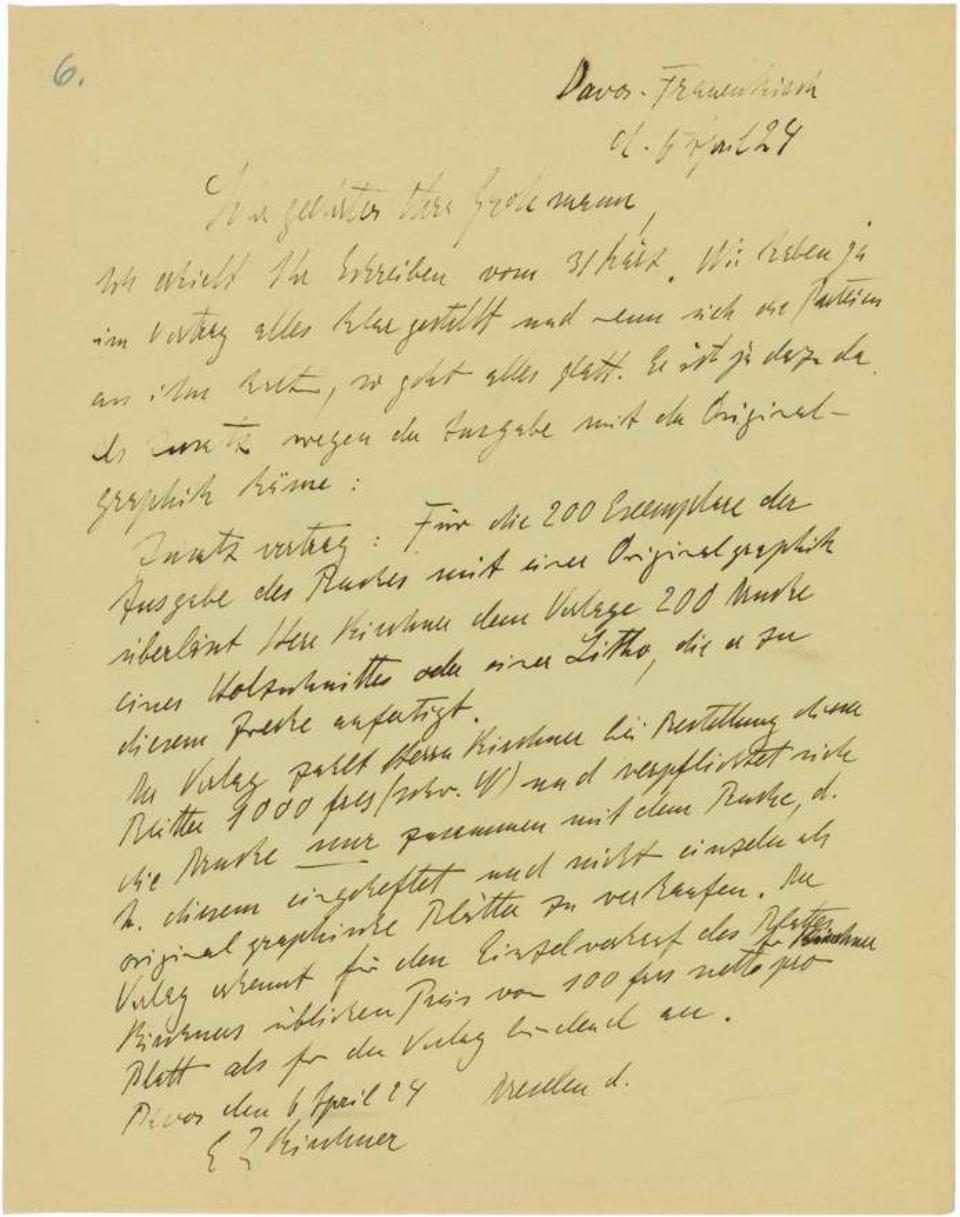 6.
Davos-Frauenkirch
d. 6 April 24
Sehr geehrter Herr Grohmann,
Ich erhielt Ihr Schreiben vom 31 März. Wir haben ja
im Vertrag alles klar gestellt und wenn sich die Parteien
an ihn halten, so geht alles glatt. Er ist ja dazu da.
Als Zusatz wegen der Ausgabe mit der Original-
graphik käme:
Zusatzvertrag: Für die 200 Exemplare der
Ausgabe des Buches mit einer Originalgraphik
überlässt Herr Kirchner dem Verlage 200 Drucke
eines Holzschnittes oder einer Litho, die er zu
diesem Zwecke anfertigt.
Der Verlag zahlt Herrn Kirchner bei Bestellung dieser
Blätter 1000 frcs (schw. W) und verpflichtet sich
die Drucke nur zusammen mit dem Buche, d.
h. diesem eingeheftet und nicht einzeln als
original graphische Blätter zu verkaufen. Der
Verlag erkennt für den Einzelverkauf des Blattes
Kirchners üblichen Preis von 100 frcs netto pro
für Kirchner
Blatt als für den Verlag bindend an.
Davos den 6 April 24 Dresden d.
E L Kirchner